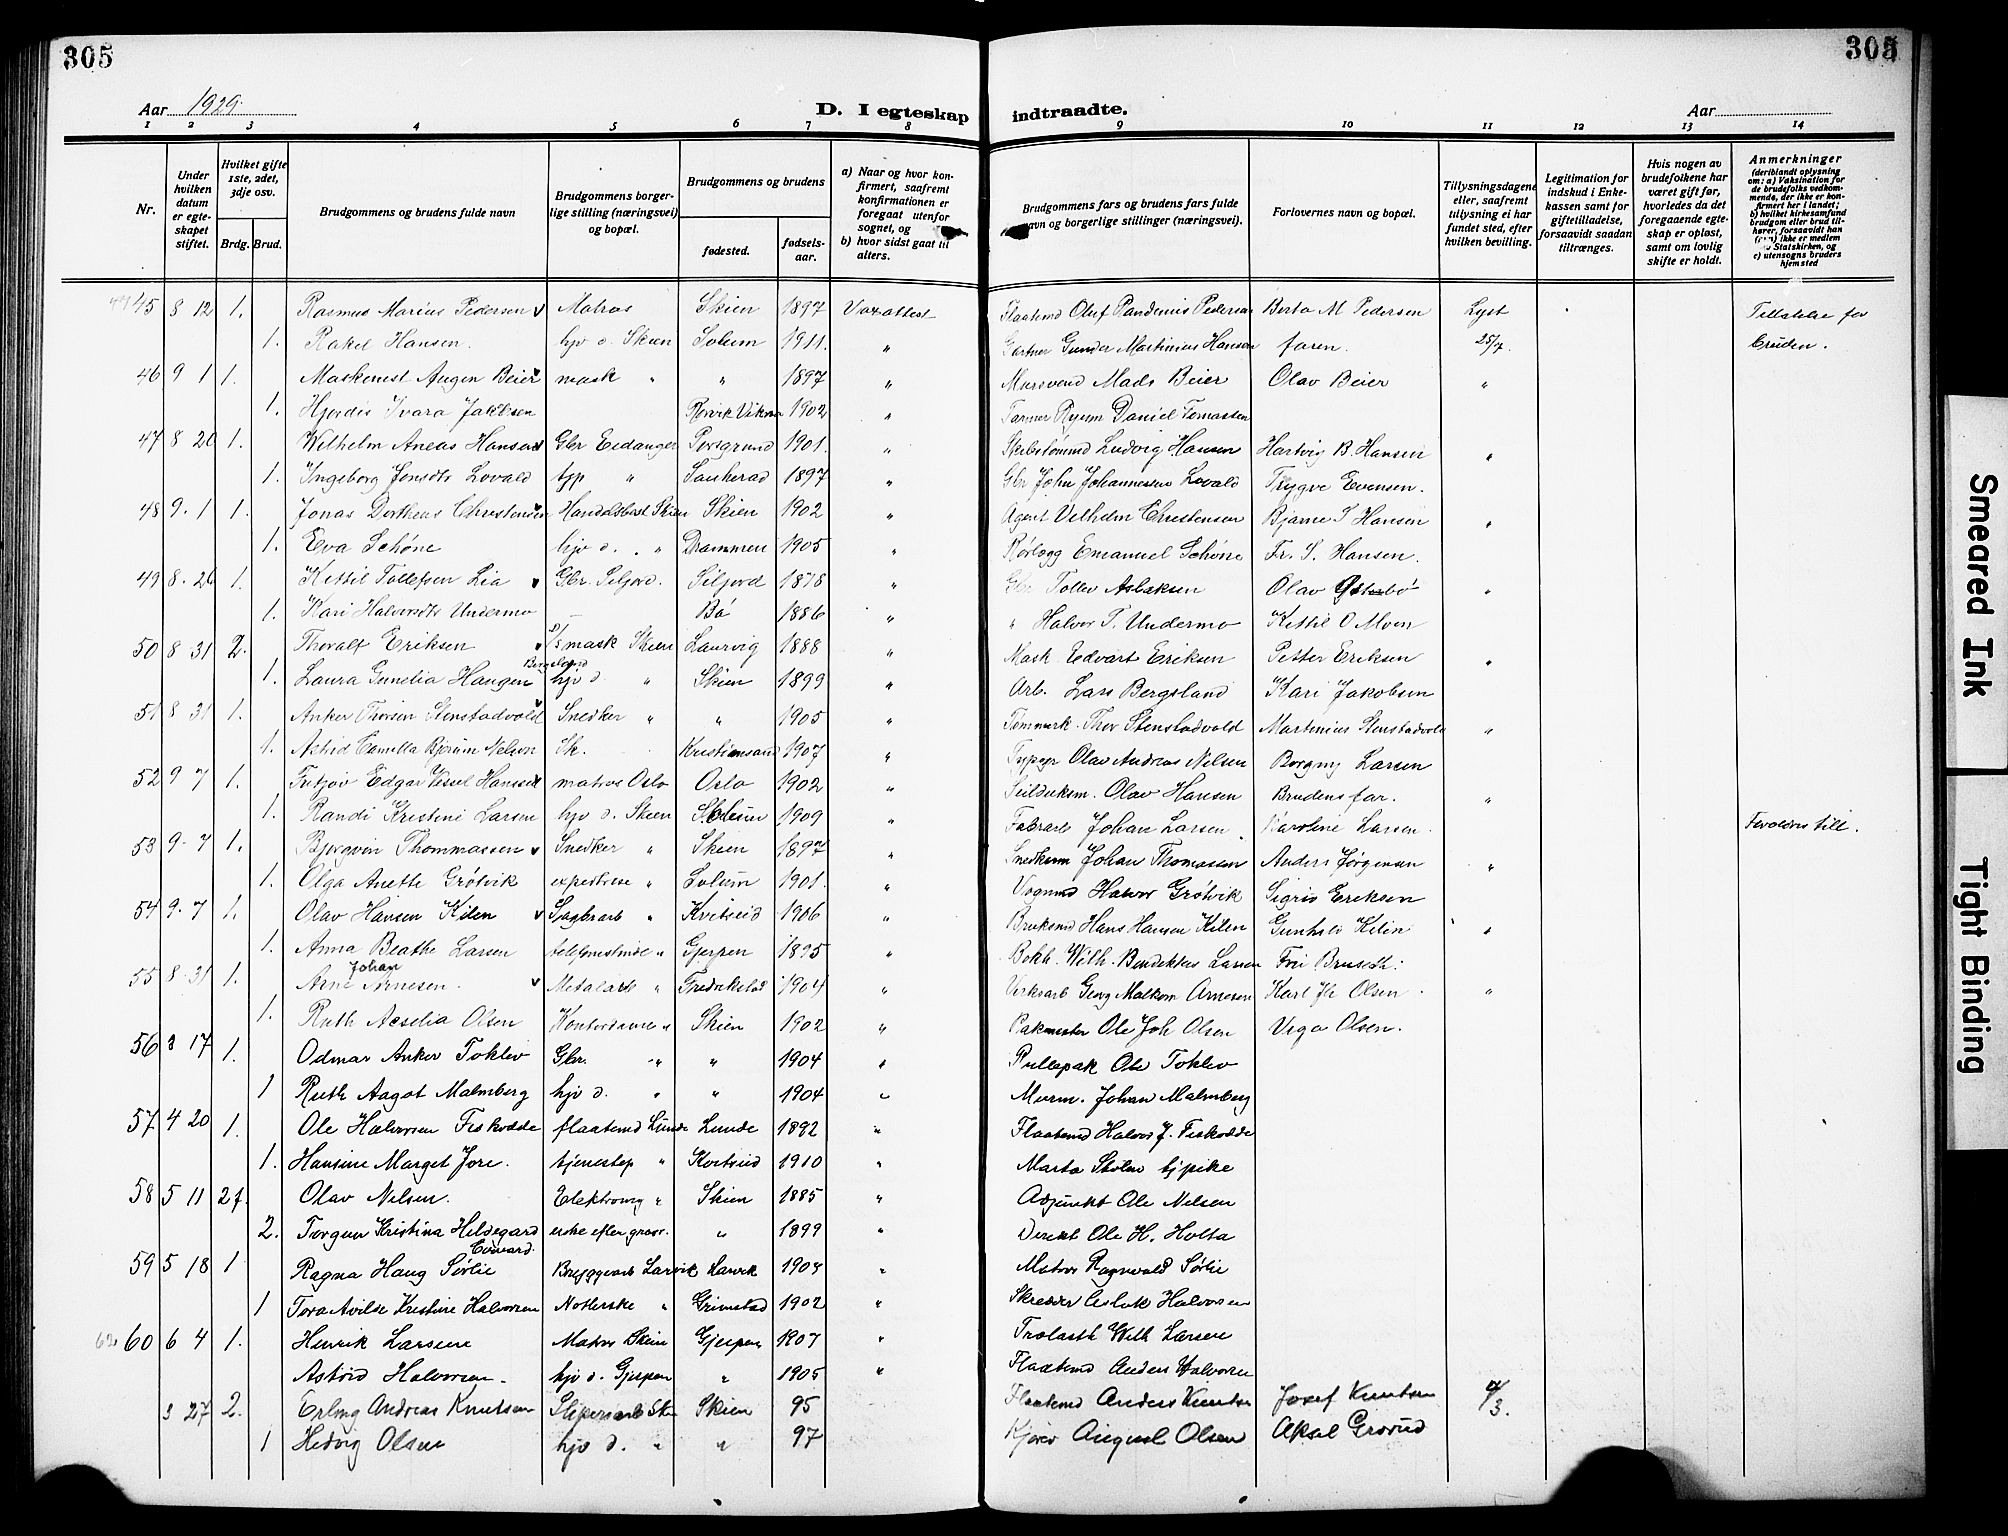 305
305
Aar 1929.
D. I egteskap indtraadte.
Aar
1 2 3 4 5 6 7 8 9 10 11 12 13 14
Nr.
Under hvilken datum er egteskapet stiftet.
Hvilket gifte 1ste, 2det, 3dje osv.
Brdg. Brud.
Brudgommens og brudens fulde navn
Brudgommens borgerlige stilling (næringsvei) og bopæl.
Brudgommens og brudens
fødested.
fødselsaar.
a) Naar og hvor konfirmert, saafremt konfirmationen er foregaat utenfor sognet, og
b) hvor sidst gaat til alters.
Brudgommens fars og brudens fars fulde navn og borgerlige stillinger (næringsvei).
Forlovernes navn og bopæl.
Tillysningsdagene eller, saafremt tillysning ei har fundet sted, efter hvilken bevilling.
Legitimation for indskud i Enkekassen samt for giftetilladelse, forsaavidt saadan tiltrænges.
Hvis nogen av brudefolkene har været gift før, hvorledes da det foregaaende egteskap er opløst, samt om lovlig skifte er holdt.
Anmerkninger (deriblandt oplysning om: a) Vaksination for de brudefolks vedkommende, der ikke er konfirmert her i landet; b) hvilket kirkesamfund brudgom eller brud tilhører, forsaavidt han ikke er medlem Statskirken, og c) utensogns bruders hjemsted
45 8 12 1. Rasmus Marius Pedersen Matros Skien 1897 Vaxattest Flaatemd Oluf Pedersen Berta M Pedersen Lyst Tillatelse for
1. Rakel Hansen. hjv d. Skien Solum 1911. " Gartner Gunder Martinius Hansen faren. 25/7. bruden.
46 9 1 1. Beier mask " " 1897 " Mursvend Mads Beier Olav Beier "
1. Hjørdis Ivara Jakobsen Rørvik Vikna 1902 " Daniel Tomassen
47 8 20 1. Wilhelm Aneas Hansen Gbr Eidanger Porsgrund 1901. " Ludvig Hansen Hartvig B. Hansen "
1. Ingeborg Jonsdtr Lovald tjp " Sauherad 1897 " Gbr John Johannessen Lovald Trygve Evensen.
48 9. 1 1. Jonas Dortheus Christensen Handelsbest Skien Skien 1902 " Agent Vilhelm Christensen Bjarne S Hansen "
1. Eva Schøne hjv d. " Drammen 1905 " Rørlægg Emanuel Schøne Fr. S. Hansen.
49 8. 26 1. Kittil Tollefsen Lia Gbr. Seljord. Seljord 1878 " Gbr Tollev Aslaksen Olav "
1. Kari Halvorsdtr Undermo — Bø 1886 " " Halvor T. Undermo Kittil O Moen
50 8 31 2. Thoralf Eriksen D/s mask Skien Laurvig 1888 " Mask Edvart Eriksen Petter Eriksen "
1. Laura Gunelia Haugen Bergsland hjv d " Skien 1899 " Arb. Lars Bergsland Kari Jakobsen
51 8 31 1. Anker Thorsen Stenstadvold Snedker " " 1905 " Tømmerk. Thor Stenstadvold Martinius Stenstadvold "
1. Astrid Camilla Bjørum Nelsen Sk. Kristiansand 1907 " Olav Andreas Nilsen Borgny Larsen
52 9 7 1. Fritjov Edgar Hansen matros Oslo Oslo 1902 " Olav Hansen Brudens far. "
1. Randi Kristine Larsen hjv d. Skien Solum 1909 " Fabrarb Johan Larsen. Karoline Larsen. Foreldres till.
53 9. 7 1. Bjørgvin Thommassen Snedker " Skien 1897 " Snedkerm Johan Thomassen Anders Jørgensen "
1. Olga Anette Grøtvik expeditrise " Solum 1901. " Vognmd Halvor Grøtvik Sigrid Eriksen
54 9. 7 1. Olav Hansen Kilen Sagbrarb " Kviteseid 1906 " Bruksmd Hans Hansen Kilen Gunhild Kilen "
1. Anna Beathe Larsen " Gjerpen 1895 " Bokh. Wilh. Bendiktus Larsen
55 8 31 1. Arne Johan Arnesen. Metalarb " Fredrikstad 1904 " Verksarb Georg Malkom Arnesen Karl Olsen "
1. Ruth Aeselia Olsen Kontordame " Skien 1902 " Pakmester Ole Joh Olsen Olsen.
56 3 17 1. Odmar Anker Toklev Gbr. " " 1904 " Ole Toklev
1 Ruth Aagot Malmberg hjv d. " " 1904 " Murm. Johan Malmberg
57 4 20 1. Ole Halvorsen Fiskodde flaatemd Lunde Lunde 1892 " Flaatemd Halvor J. Fiskodde
1. Hansine Marget Jore. tjenestep " Kviteseid 1910 " Marta Stolen tjpike
58 5 11 2 f. Olav Nilsen. " Skien 1885 " Adjunkt Ole Nilsen
2. Torgun Kristina Hildegard enke efter " 1899 " Direkt Ole H. Holta
59 5 18 1 Ragna Haug Sørlie Bryggearb Larvik Larvik 1904 " Matros Ragnvald Sørlie
1 Tora Avilde Kristine Halvorsen " Grimstad 1902 " Skredder Aslak Halvorsen
60 6 4 1. Henrik Larsen Matros Skien Gjerpen 1907 " Wilh Larsen
Astrid Halvorsen. hjv d. Gjerpen " 1905 " Flaatemd Anders Halvorsen
3 27 2. Erling Andreas Knutsen Skien 95 Flaatemd Anders Knutsen Josef Knutsen
1 Hedvig Olsen hjv d. " " 97 Kjører August Olsen Aksel Grorud
Smeared Ink
Tight Binding